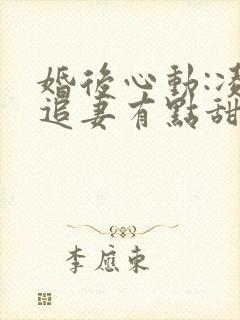 婚後心動:凌
追妻有點甜
李應東